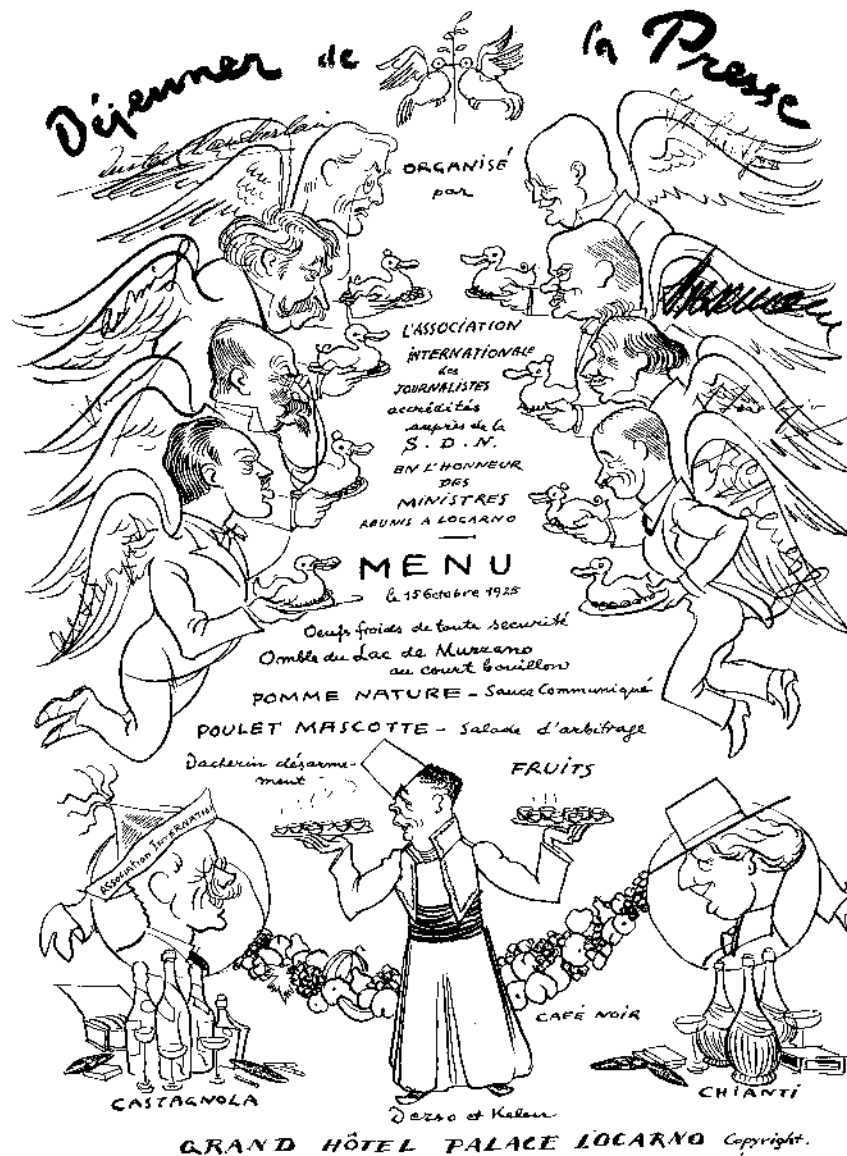 Déjeuner de la Presse
Austen Chamberlain
ORGANISÉ
par
L'ASSOCIATION
INTERNATIONALE
des
JOURNALISTES
accrédités
auprès de la
S. D. N.
EN L'HONNEUR
DES
MINISTRES
REUNIS A LOCARNO
MENU
le 15 Octobre 1925
Oeufs froids de toute securité
Omble du Lac de Murzano
au court bouillon
POMME NATURE - Sauce Communiqué
POULET MASCOTTE - Salade d'arbitrage
Vacherin désarme-
ment
FRUITS
ASSOCIATION INTERNATION
CAFÉ NOIR
CASTAGNOLA
CHIANTI
Derso et Kelen
GRAND HÔTEL PALACE LOCARNO Copyright.